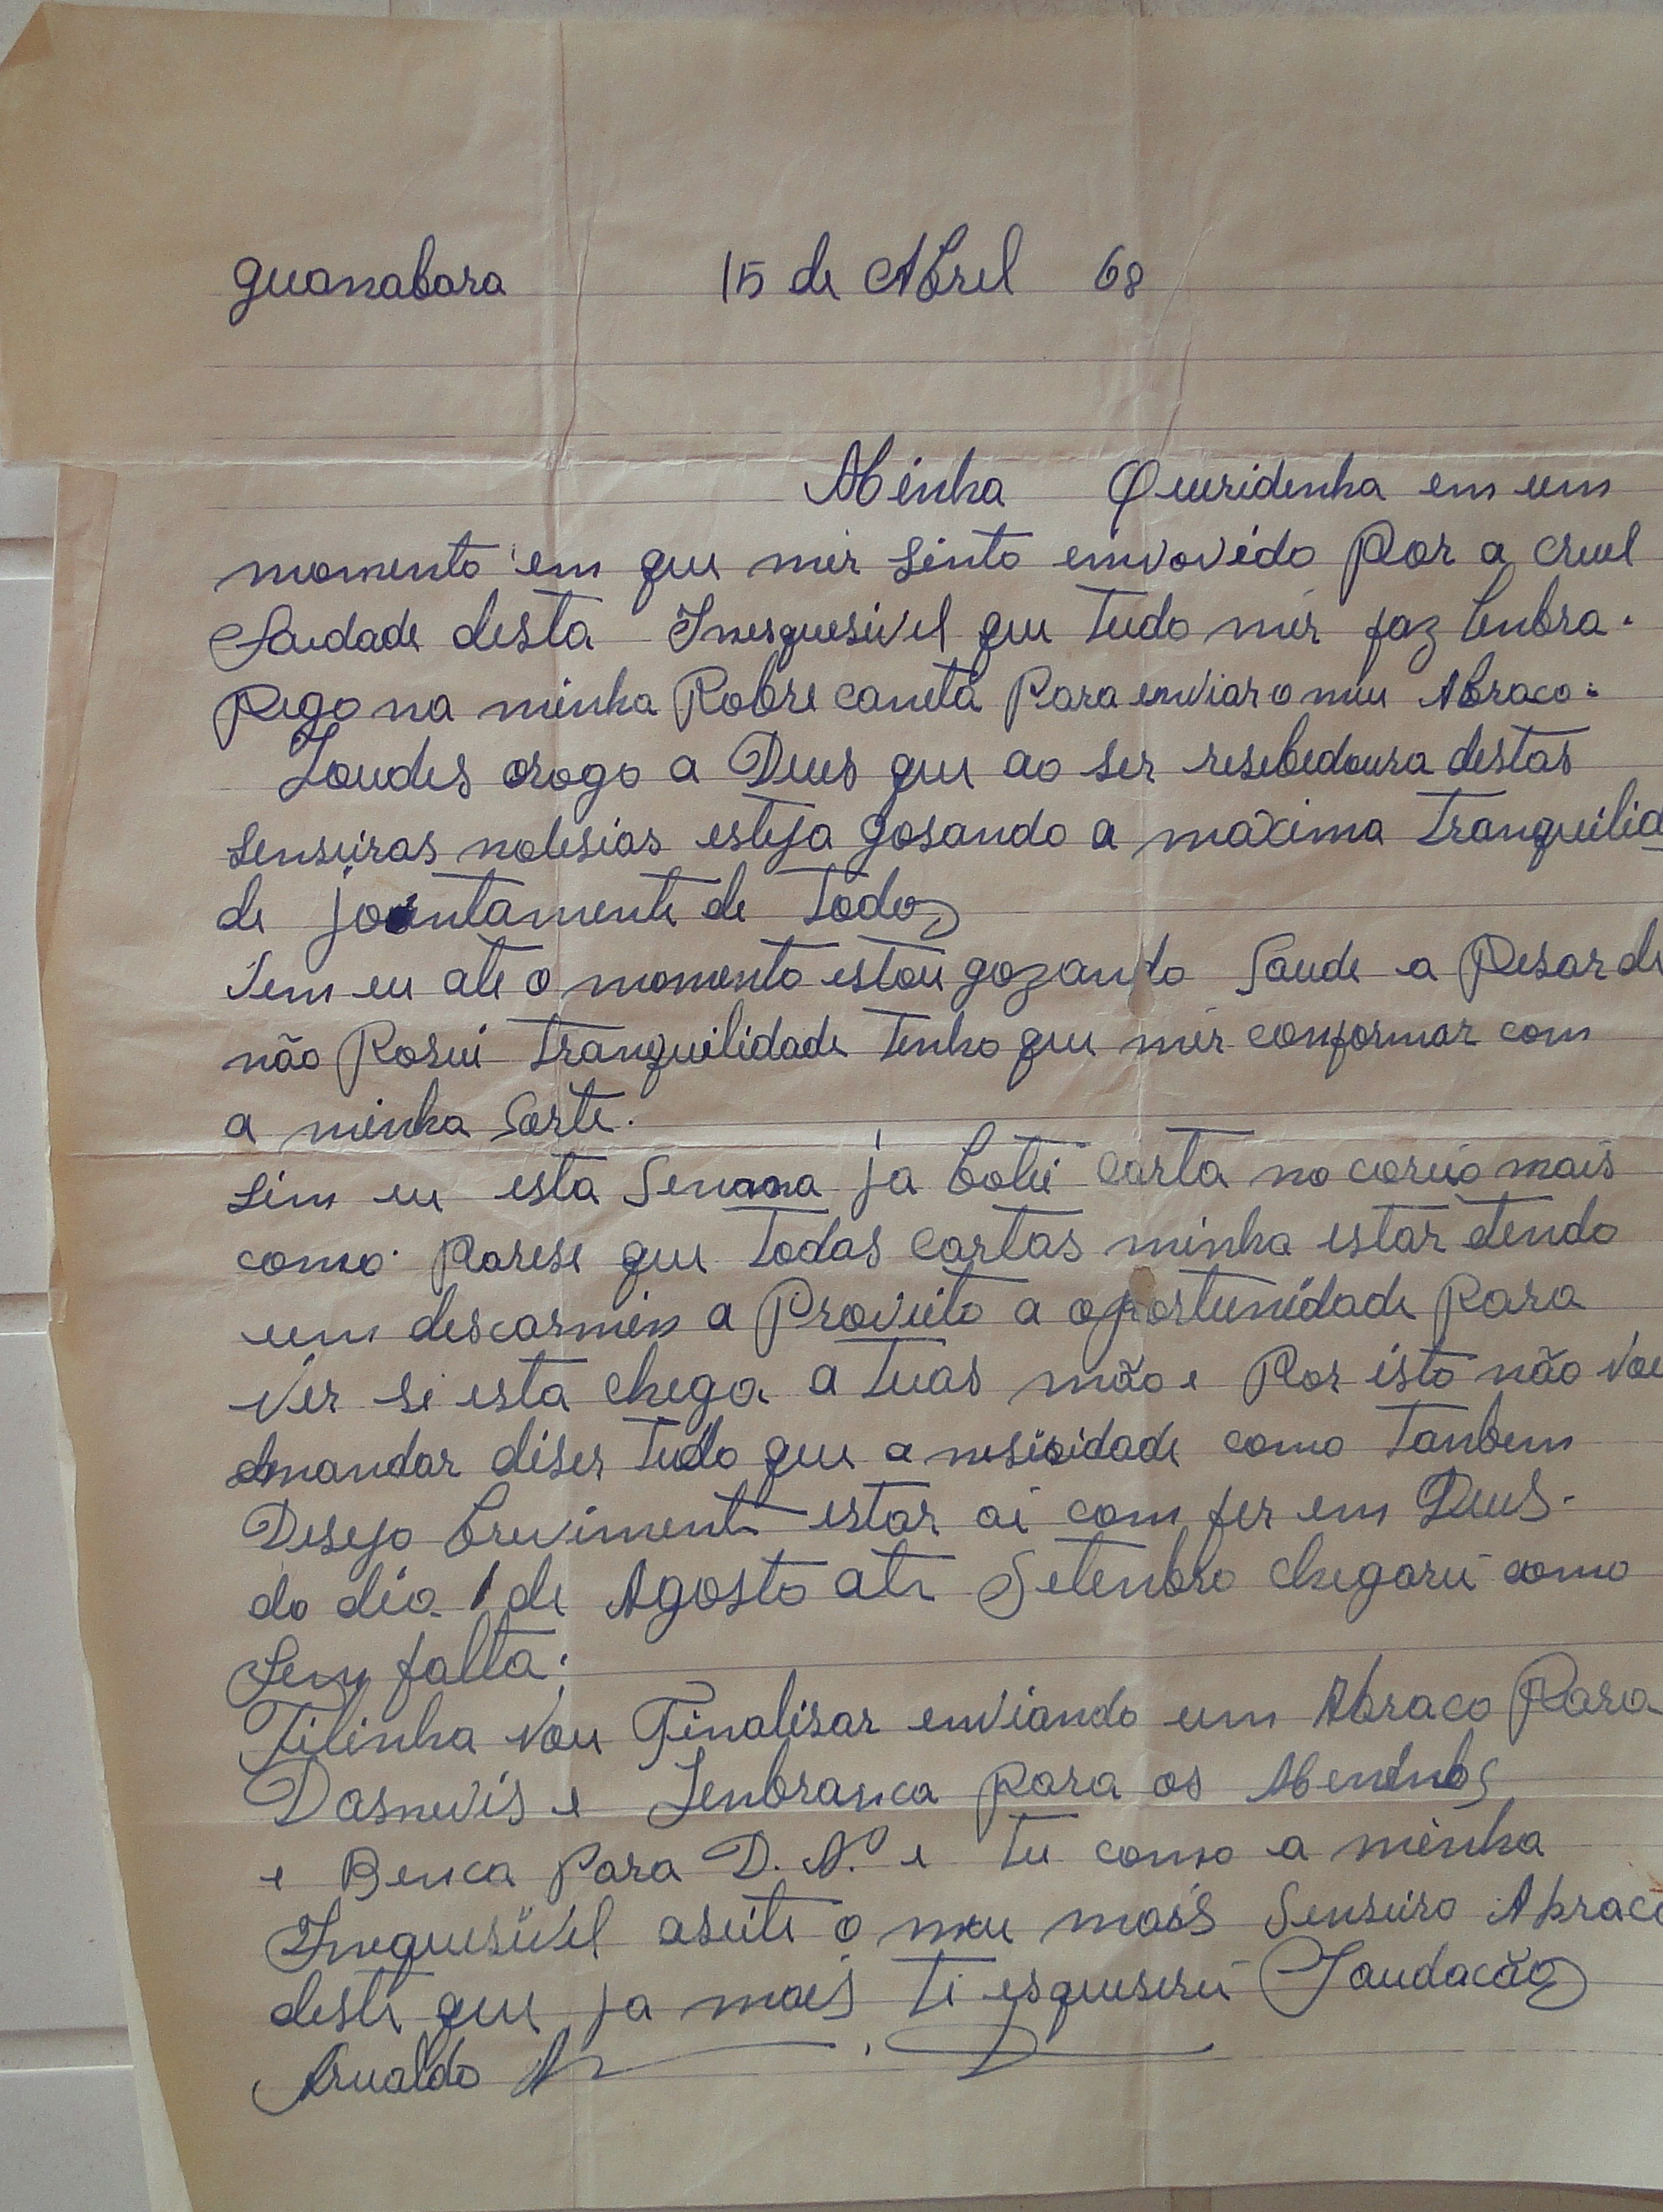 guanabara 15 de Abrel 68
Minha Queuridinha em um
momento em que mir sinto eivovido Por a cruel
Saudade desta Inesquesivel que tudo mir faz lenbra.
Pego na minha Pobre caneta Para enviar o meu Abraco.
Loudes orogo a Deus que ao ser resebedoura destas
senseiras notesias esteja gosando a maxima tranquilid
de jountamente de todos
Sem eu ate o momento estou gozando Saude a Pesar de
não Posui tranquilidade tenho que mir conformar com
a minha Sorte.
sim eu esta Semana ja botei carta no coreio mais
como Parese que todas cartas minha estar tendo
um descarmin a Proveito a oportunidade Para
ver si esta chega a tuas mão e Por isto não vou
mandar diser tudo que a nesisidade como tanbem
Desejo brevimente estar ai com fer em Deus.
do dia 1 de Agosto ate Setenbro chegarei como
Sem falta.
Filinha vou Finalisar enviando um Abraco Para
Dasnevis e Lenbranca Para os Meninos
e Benca Para D. N.º e tu como a minha
Inequesivel aseite o meu mais Senseiro Abraco
deste que ja mais ti esqueserei Saudacão
Arnaldo